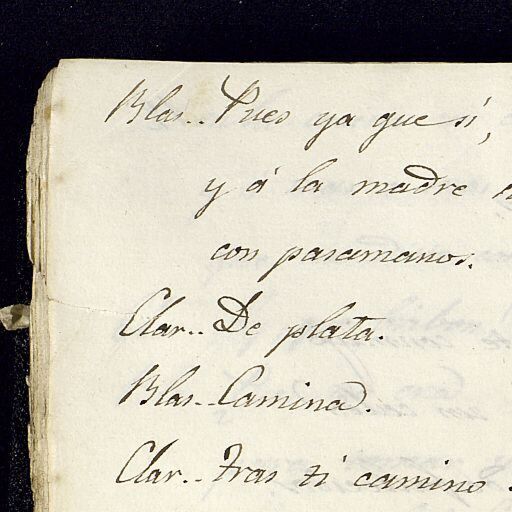 Blas.. Pues ya que sí,
y á la madre
con pasamanos.
Clar.. De plata.
Blas.. Camina.
Clar.. Tras ti camino.